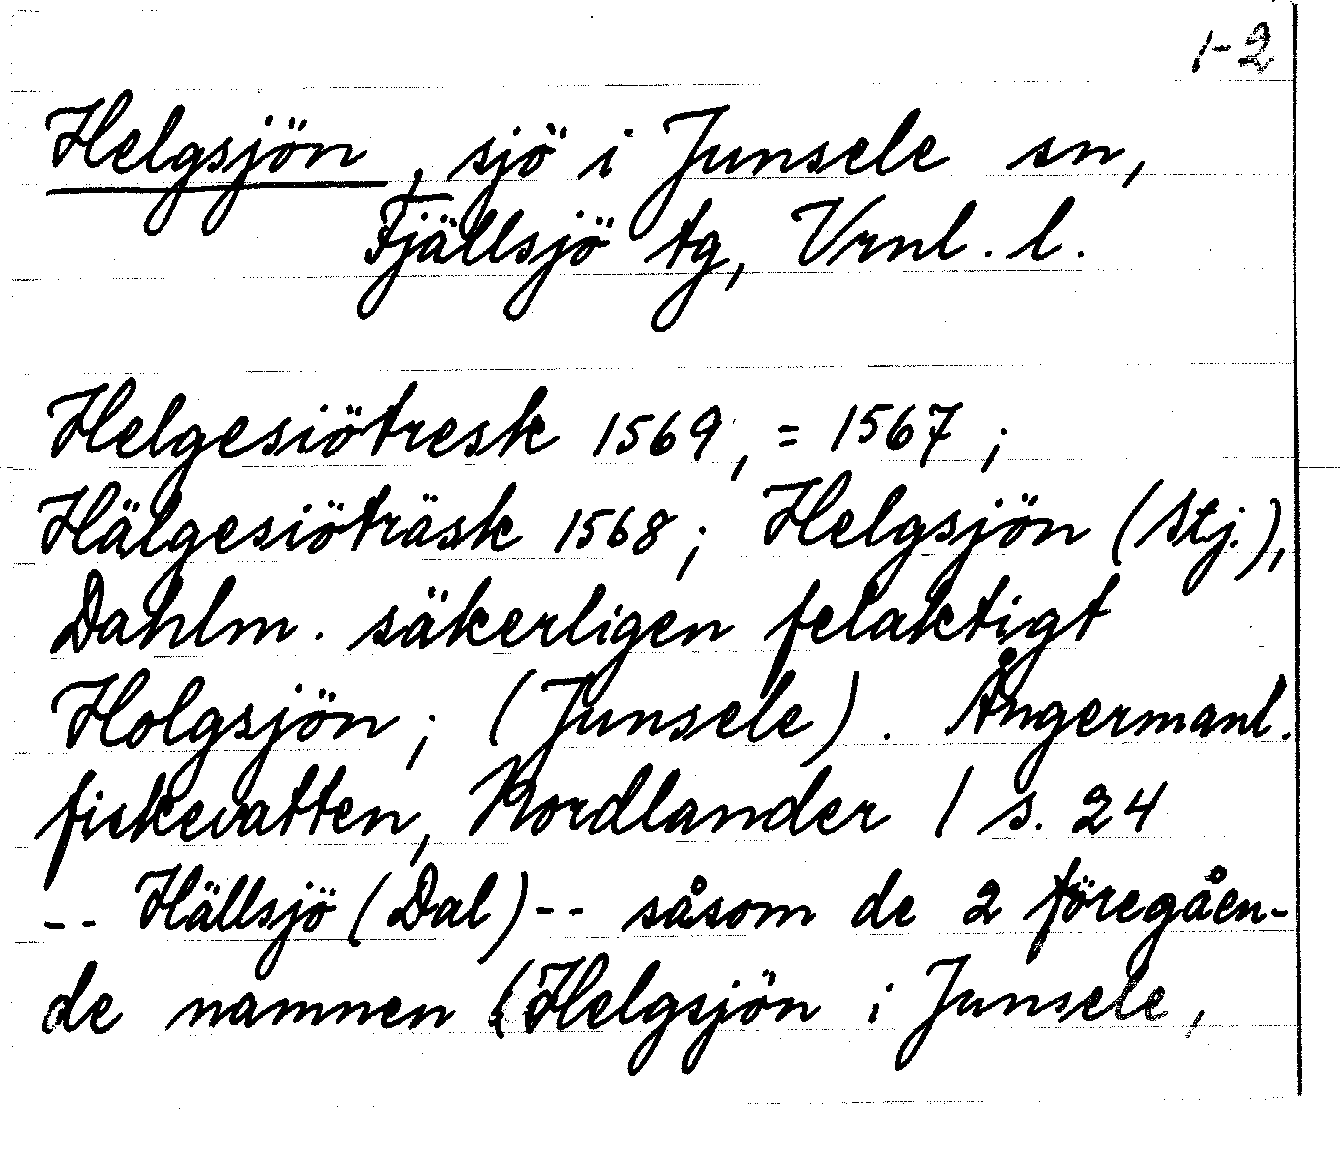 1-2
Helgsjön, sjö i Junsele sn,
Fjällsjö tg, Vrnl. l.
Helgesiötresk 1569, = 1567;
Hälgesiöträsk 1568; Helgsjön (Stj.),
Dahlm. säkerligen felaktigt
Holgsjön; (Junsele). Ångermanl.
fiskevatten, Nordlander 1 s. 24
-- Hällsjö (Dal) -- såsom de 2 föregåen-
de namnen (Helgsjön i Junsele,